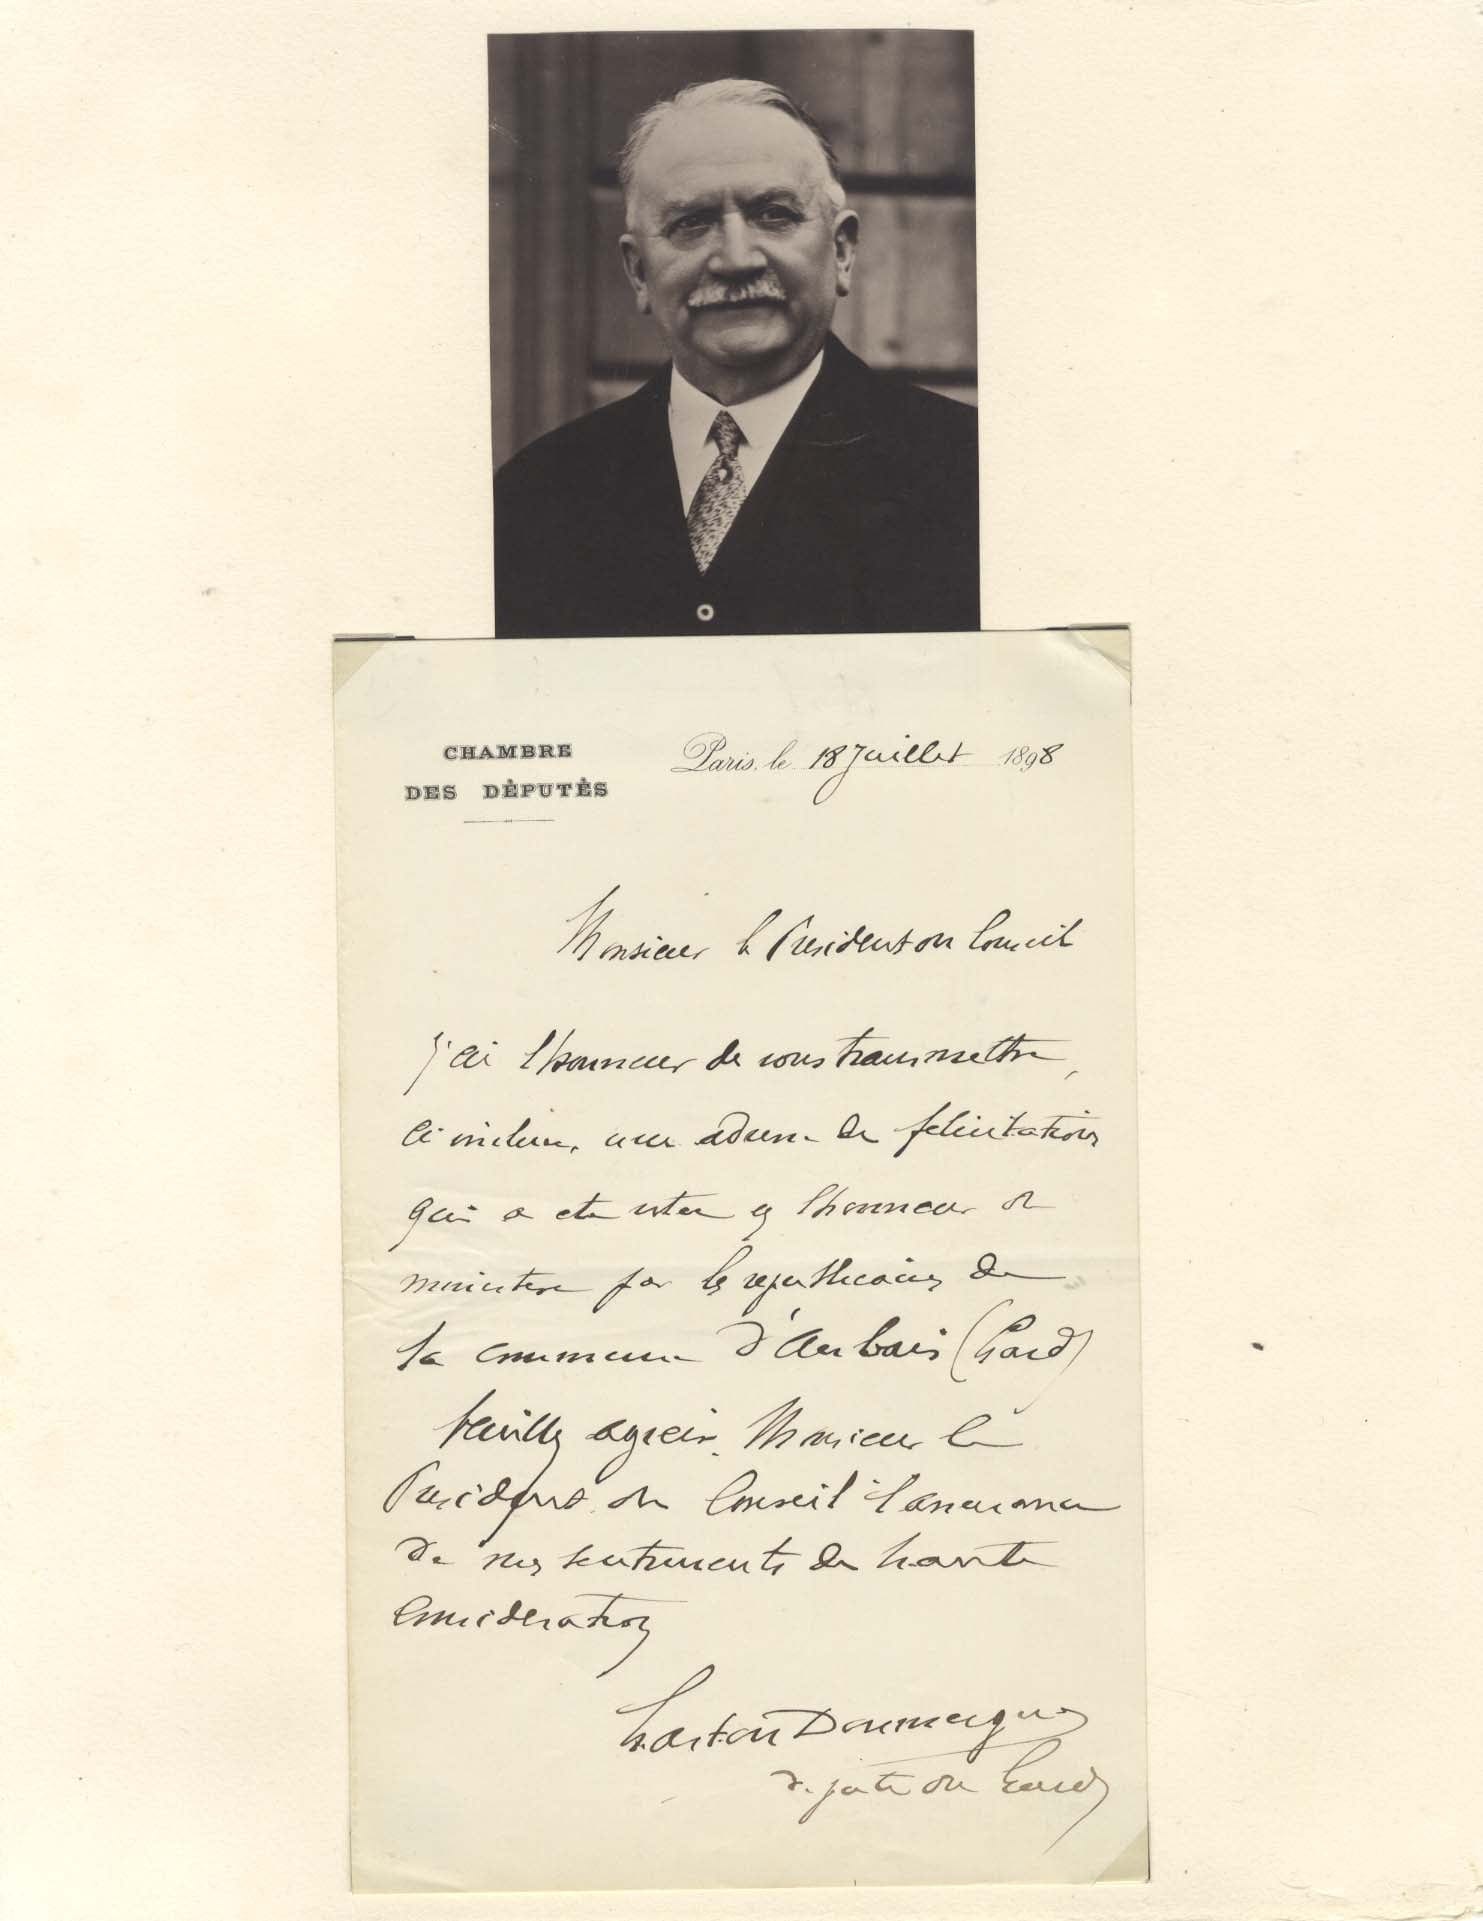 CHAMBRE
DES DÉPUTÉS
Paris, le 18 Juillet 1898
Monsieur le President du Conseil
J'ai l'honneur de vous transmettre,
ci incluse, une adresse de felicitations
qui a ete votee en l'honneur du
ministere par les republicains de
la commune d'Aubais (Gard)
Veuillez agreer, Monsieur le
President du Conseil l'assurance
de mes sentiments de haute
consideration
Gaston Doumergue
depute du Gard